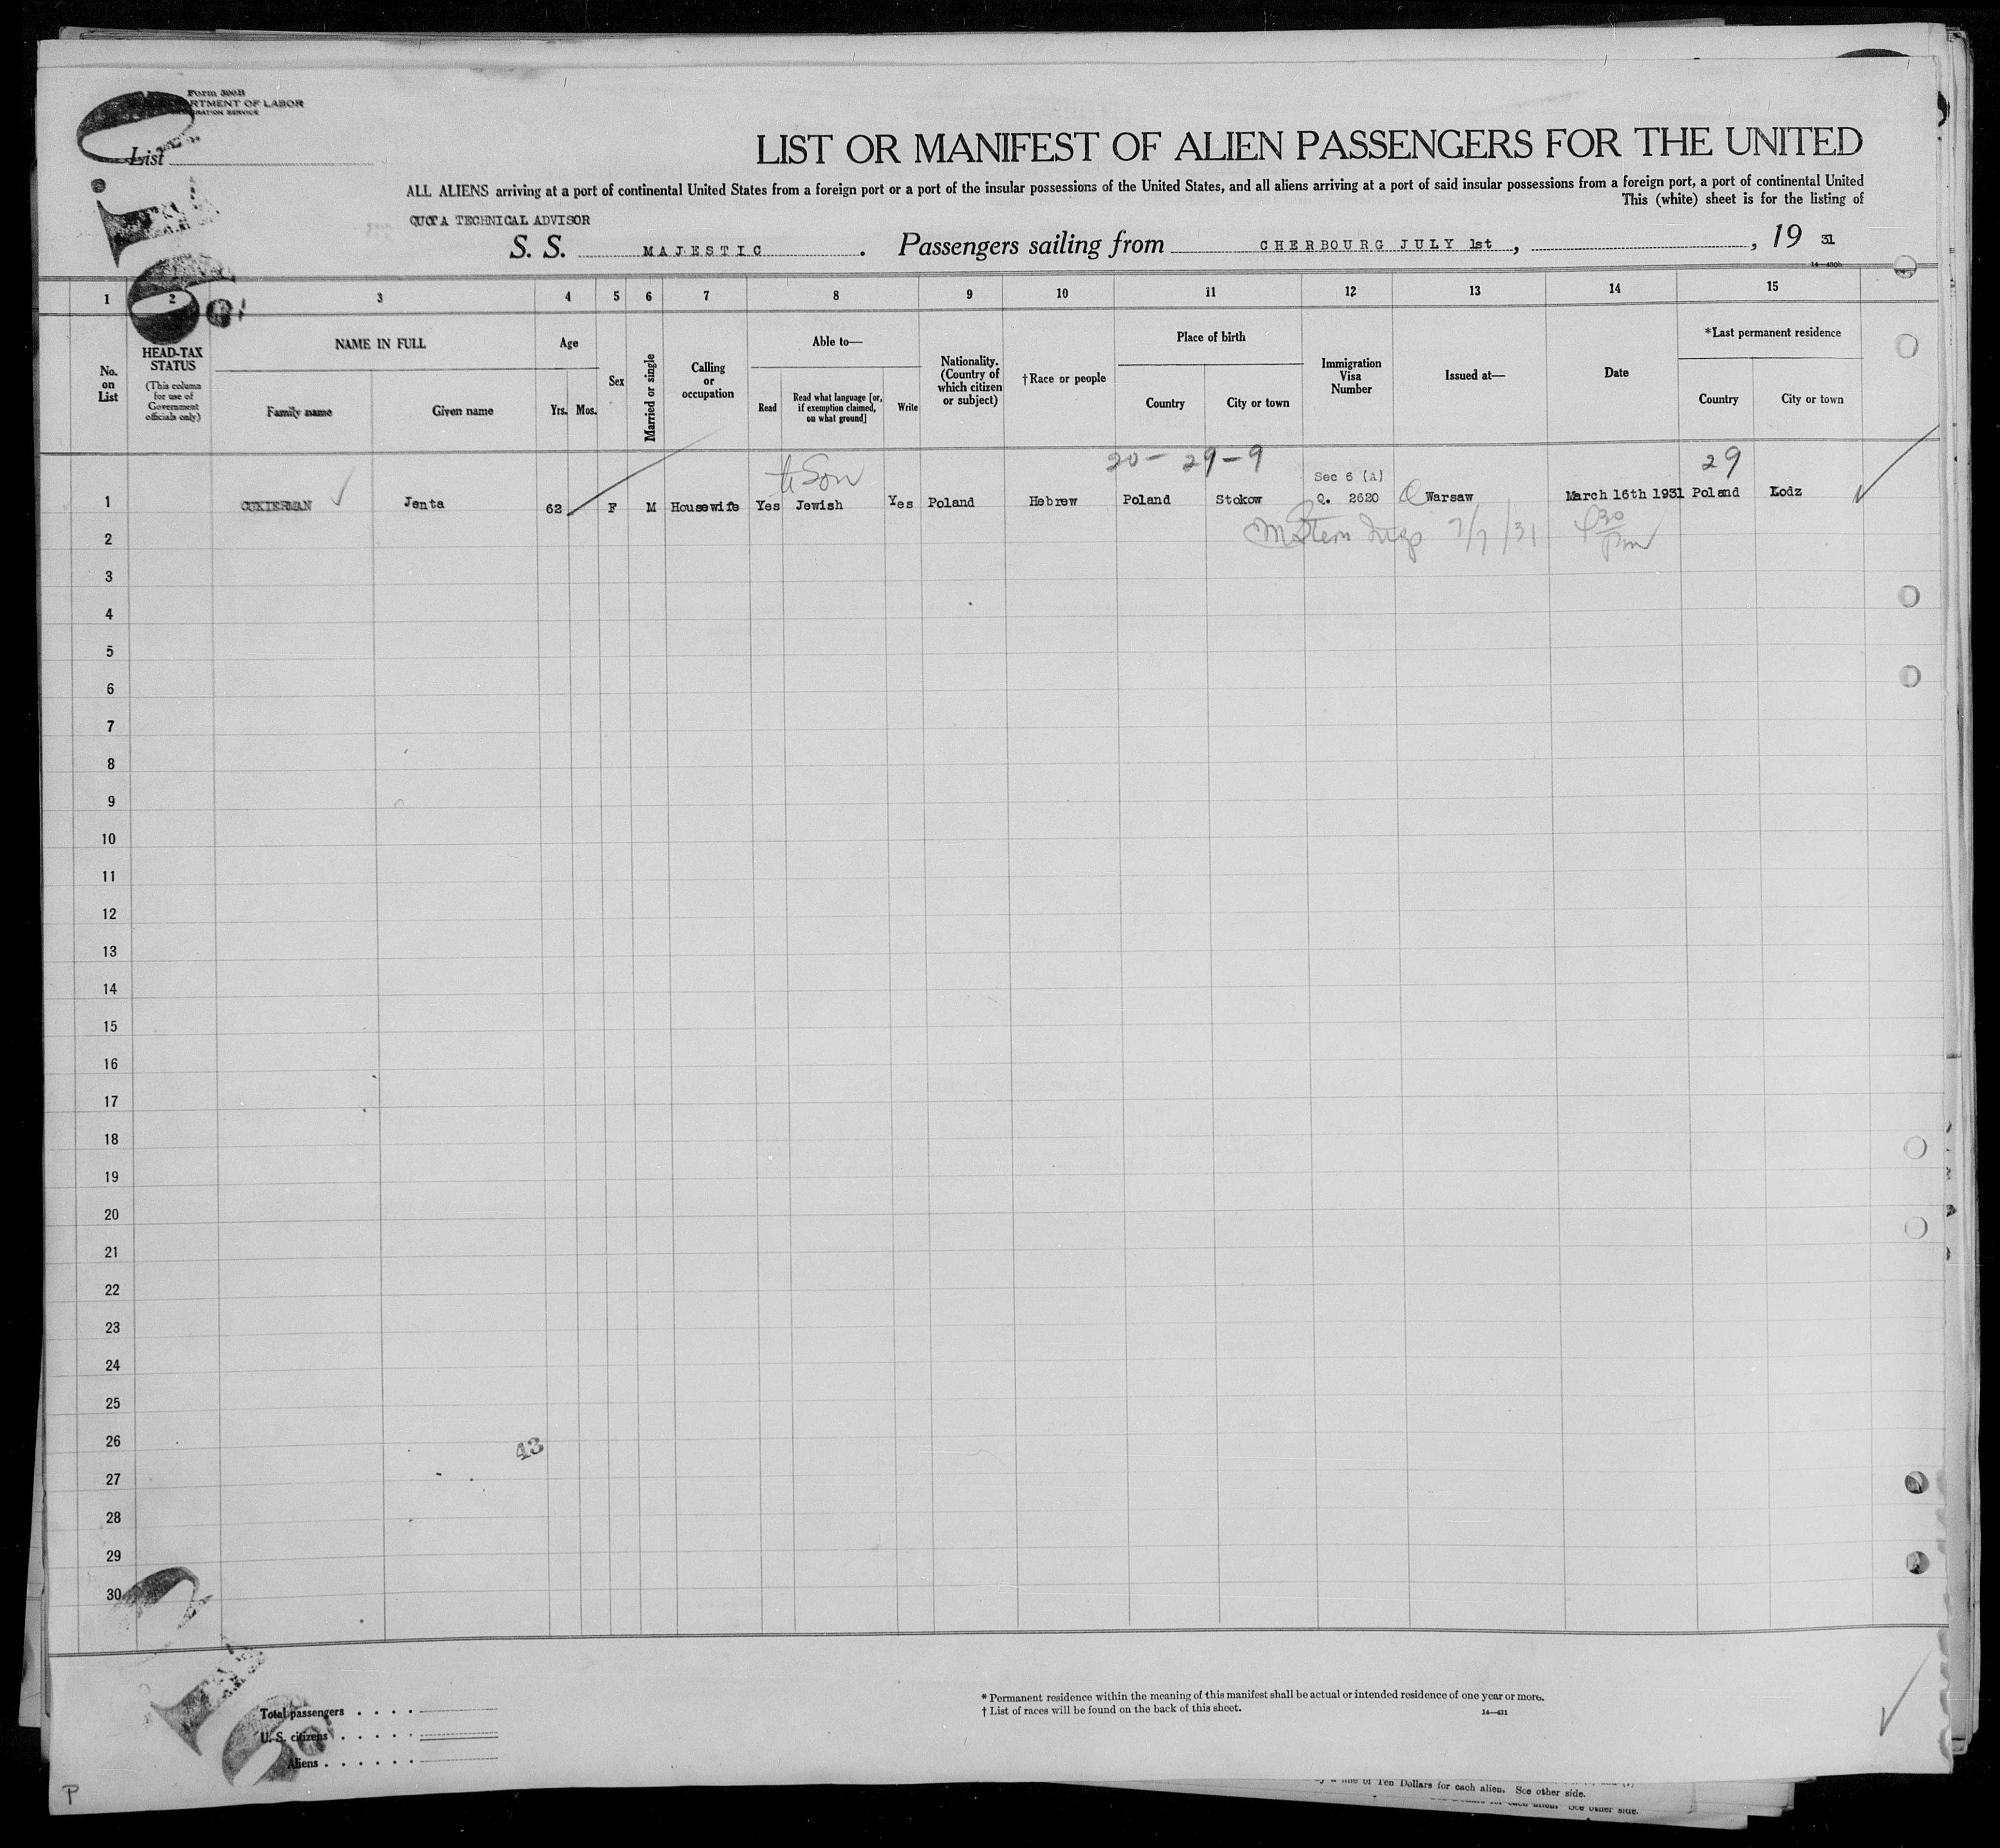 Form 500B
RTMENT OF LABOR
List
LIST OR MANIFEST OF ALIEN PASSENGERS FOR THE UNITED
ALL ALIENS arriving at a port of continental United States from a foreign port or a port of the insular possessions of the United States, and all aliens arriving at a port of said insular possessions from a foreign port, a port of continental United
This (white) sheet is for the listing of
QUOTA TECHNICAL ADVISOR
S. S. MAJESTIC. Passengers sailing from CHERBOURG JULY 1st, , 19 31
1 2 3 4 5 6 7 8 9 10 11 12 13 14 15
No. on List
HEAD-TAX STATUS
(This column for use of Government officials only)
NAME IN FULL
Family name
Given name
Age
Yrs. Mos.
Sex
Married or single
Calling or occupation
Able to—
Read
Read what language [or, if exemption claimed, on what ground]
Write
Nationality. (Country of which citizen or subject)
†Race or people
Place of birth
Country
City or town
Immigration Visa Number
Issued at—
Date
*Last permanent residence
Country
City or town
20 - 29 - 9
29
Son
Sec 6 (A)
1 CUKIERMAN Jenta 62 F M Housewife Yes Jewish Yes Poland Hebrew Poland Stokow Q. 2620 Warsaw March 16th 1931 Poland Lodz
2 7/7/31
3
4
5
6
7
8
9
10
11
12
13
14
15
16
17
18
19
20
21
22
23
24
25
26
43
27
28
29
30
* Permanent residence within the meaning of this manifest shall be actual or intended residence of one year or more.
† List of races will be found on the back of this sheet.
14—431
Total passengers
U. S. citizens
Aliens
P
of Ten Dollars for each alien. See other side.
See other side.